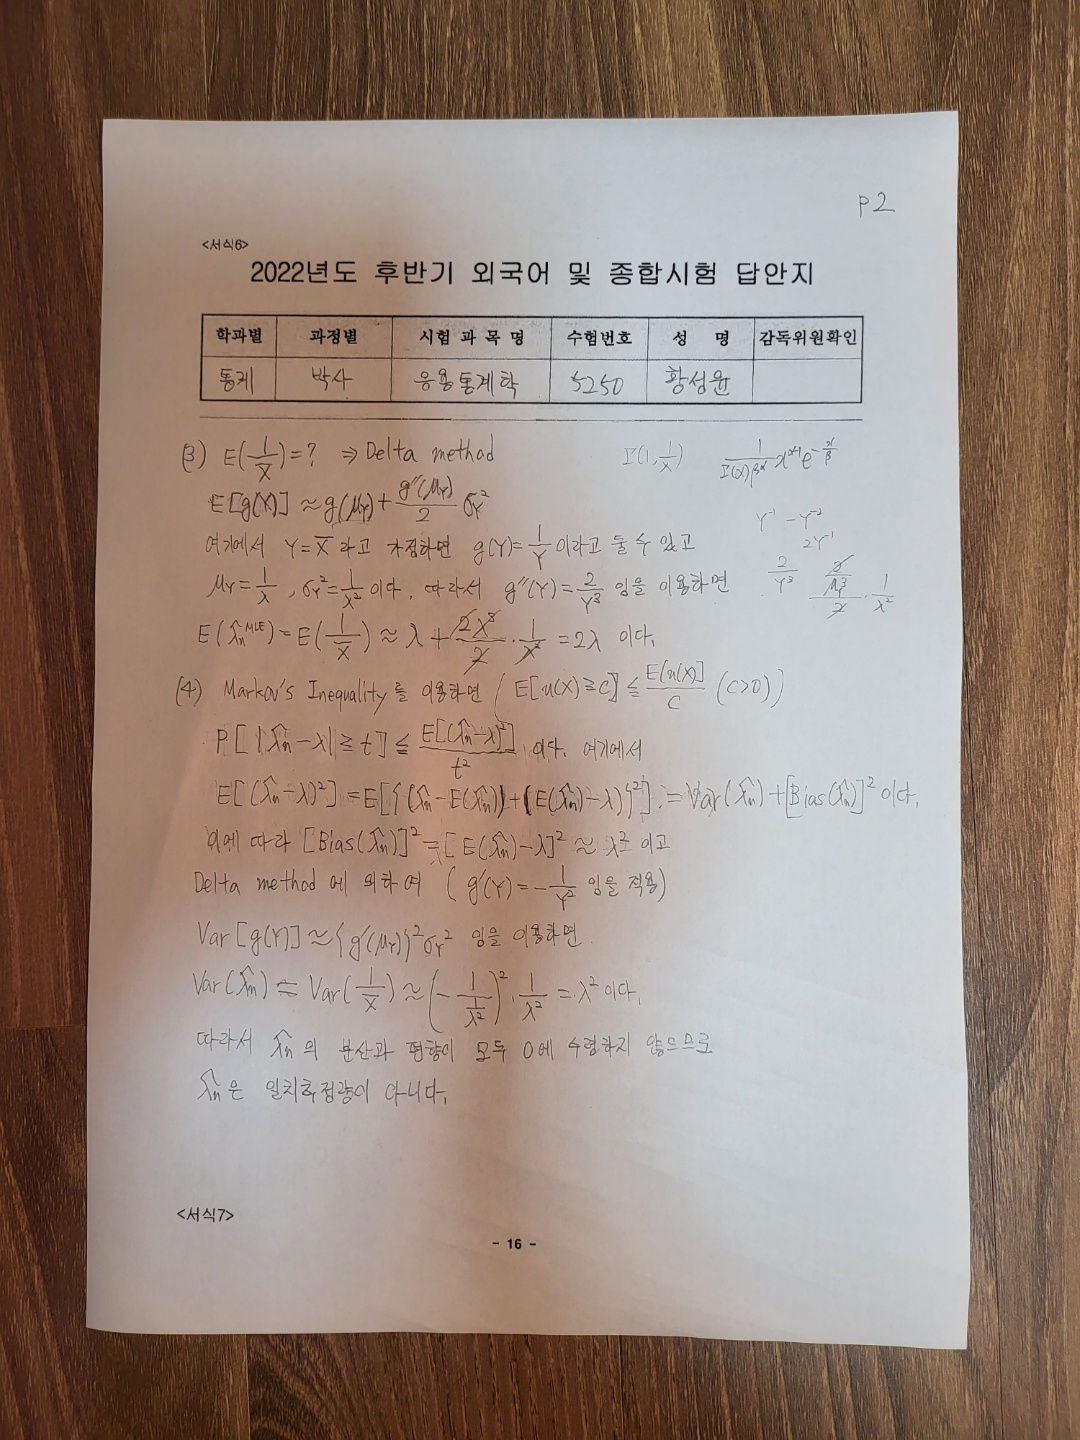 P2
<서식6>
2022년도 후반기 외국어 및 종합시험 답안지
학과별 과정별 시험 과 목 명 수험번호 성 명 감독위원확인
통계 박사 응용통계학 5250 황성윤
(3) E(1/X̄)=? ⇒ Delta method Γ(1, 1/λ) 1/(Γ(α)β^α) x^(α-1) e^(-x/β)
E[g(Y)] ≈ g(μ_Y) + g''(μ_Y)/2 σ_Y²
여기에서 Y=X̄ 라고 가정하면 g(Y)=1/Y 이라고 둘 수 있고
Y⁻¹ -Y⁻²
2Y⁻¹
μ_Y=1/λ , σ_Y²=1/λ² 이다. 따라서 g''(Y)=2/Y³ 임을 이용하면
2/Y³ (2/μ_Y³)/2 · 1/λ²
E(λ̂_n^MLE)=E(1/X̄) ≈ λ + 2λ³/2 · 1/λ² = 2λ 이다.
(4) Markov's Inequality를 이용하면 (E[u(X)≥c] ≤ E[u(X)]/c (c>0))
P[|λ̂_n-λ| ≥ t] ≤ E[(λ̂_n-λ)²]/t² 이다. 여기에서
E[(λ̂_n-λ)²] = E[{(λ̂_n-E(λ̂_n))+(E(λ̂_n)-λ)}²] = Var(λ̂_n)+[Bias(λ̂_n)]² 이다.
이에 따라 [Bias(λ̂_n)]² = [E(λ̂_n)-λ]² ≈ λ² 이고
Delta method 에 의하여 (g'(Y)=-1/Y² 임을 적용)
Var[g(Y)] ≈ {g'(μ_Y)}²σ_Y² 임을 이용하면
Var(λ̂_n) = Var(1/X̄) ≈ (-1/(1/λ²))² · 1/λ² = λ² 이다.
따라서 λ̂_n 의 분산과 편향이 모두 0에 수렴하지 않으므로
λ̂_n은 일치추정량이 아니다.
<서식7>
- 16 -